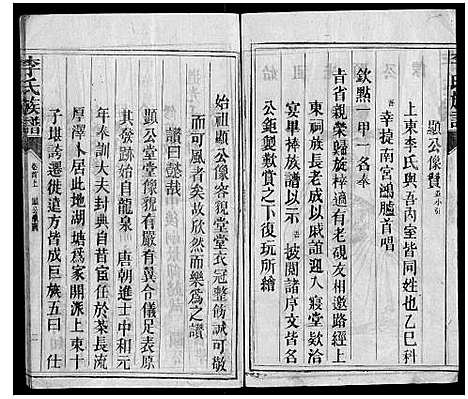 顯公像贊並小引
上東李氏與吾內室皆一姓也乙巳科
吾幸捷南宮鴻臚首唱
欽點一甲一名奉
旨省親榮歸旋梓適有老硯友相邀路經上
東祠族長老成以戚誼迎入寢堂款洽
宴畢捧族譜以示吾披閱諸序文皆名
公鉅製歎賞之下復玩所繪
始祖顯公像容貌堂堂衣冠整飭誠可敬
而可風者矣故欣然而樂為之讚
讚曰懿哉
顯公堂堂像貌有嚴有翼令儀足表原
其發跡始自龍泉 唐朝進士中和元
年奉訓大夫封典自昔宦任於茶長流
厚澤卜居此地湖塘爲家開派上東十
子堪誇遷徙遠方皆成巨族五曰 仕
李氏族譜
卷首上